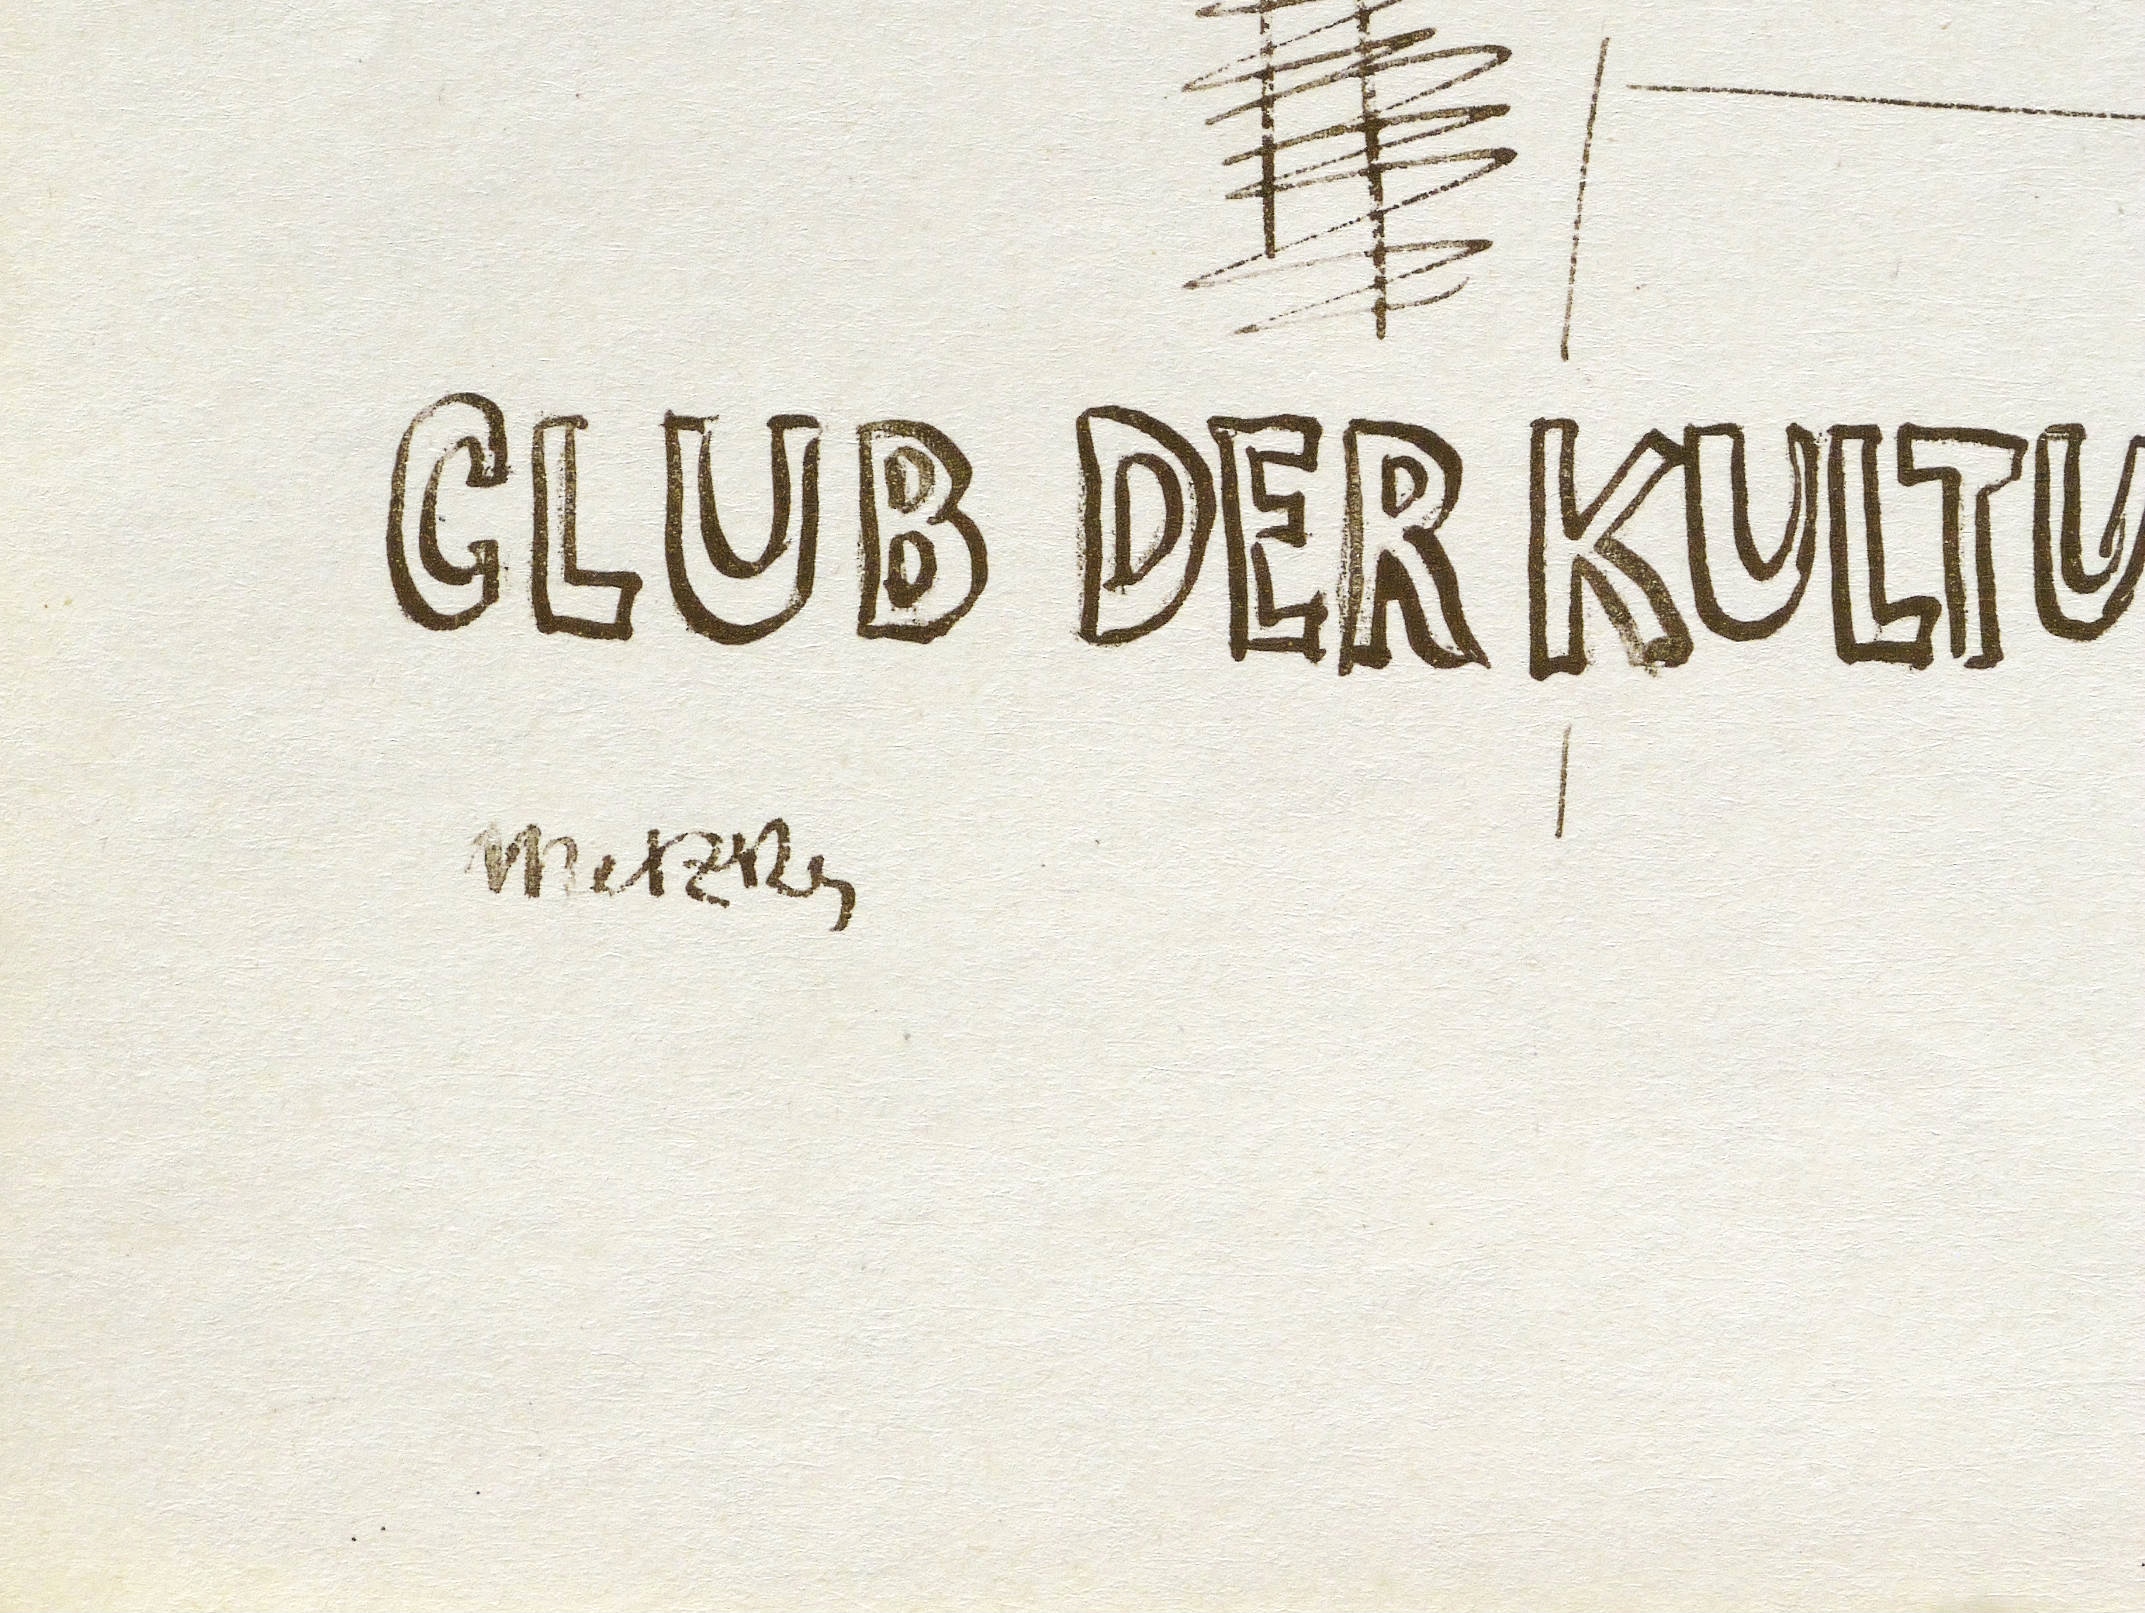 CLUB DER KULTU
Metzkes